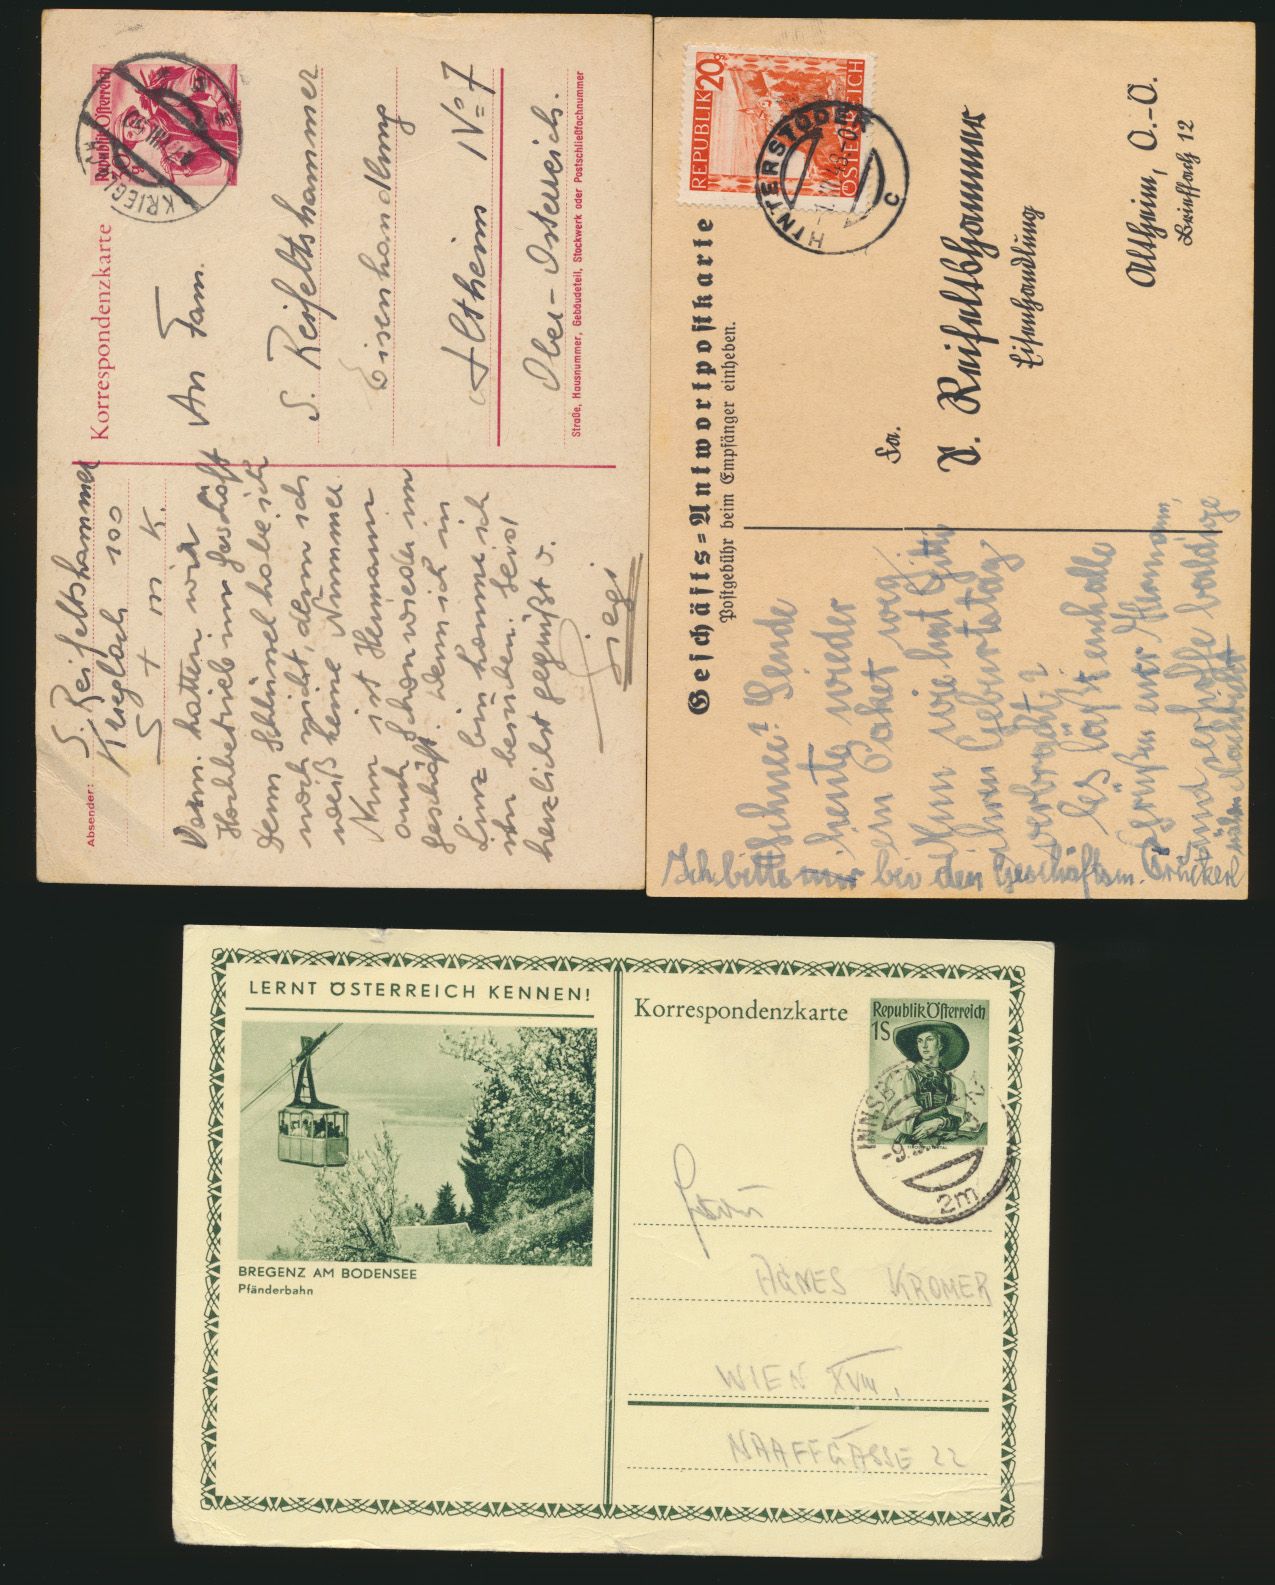 Korrespondenzkarte
Republik Österreich
KRIEGLACH
Absender:
S. Reifeltshammer
Krieglach 100
An Fam.
S. Reifeltshammer
Eisenhandlung
Altheim Nº 7
Ober-Österreich.
Straße, Hausnummer, Gebäudeteil, Stockwerk oder Postschließfachnummer
hatten wir
Hochbetrieb im Geschäft
Denn Schlüssel habe ich
noch nicht, denn ich
weiß keine Nummer.
Nun ist Hermann
auch schon wieder im
Geschäft. Wenn ich in
Linz bin komme ich
ihn besuchen. Seid
herzlichst gegrüßt v.
Siegi
Geschäfts-Antwortpostkarte
Postgebühr beim Empfänger einheben.
REPUBLIK 20g
ÖSTERREICH
HINTERSTODER
C
Fa.
S. Reifeltshammer
Eisenhandlung
Altheim, O.-Ö.
Brieffach 12
Schnee! Sende
heute wieder
ein Paket weg,
Nun wie hat
ihren Geburtstag
verbracht?
Es läßt euch alle
grüßen eure Hermann,
und erhoffe baldige
Nachricht
Ich bitte bei den Geschäftsm. Drucker
LERNT ÖSTERREICH KENNEN!
BREGENZ AM BODENSEE
Pfänderbahn
Korrespondenzkarte
Republik Österreich
1S
2m
Frau
AGNES KROMER
WIEN XVIII.
NAAFFGASSE 22